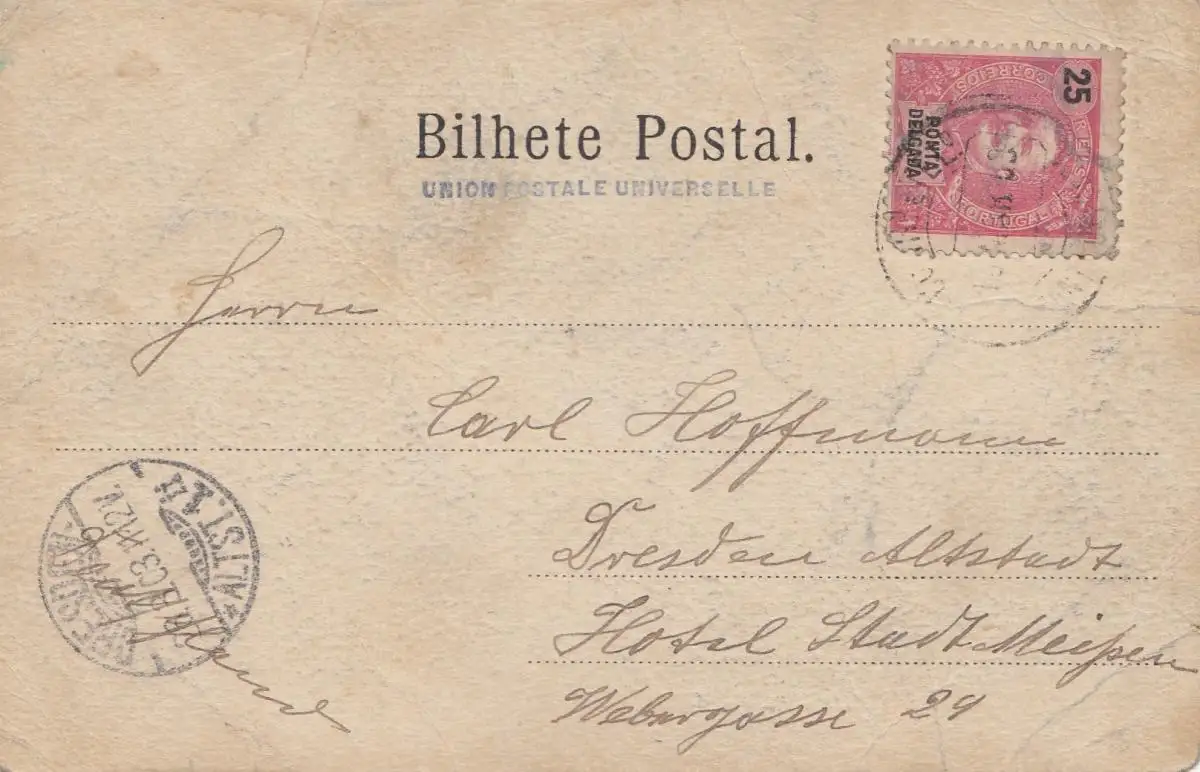 Bilhete Postal.
UNION POSTALE UNIVERSELLE
25
CORREIOS
PONTA
DELGADA
PORTUGAL
Herrn
Carl Hoffmann
Dresden Altstadt
Hotel Stadt Meißen
Webergasse 29
DRESDEN
ALTST. 1